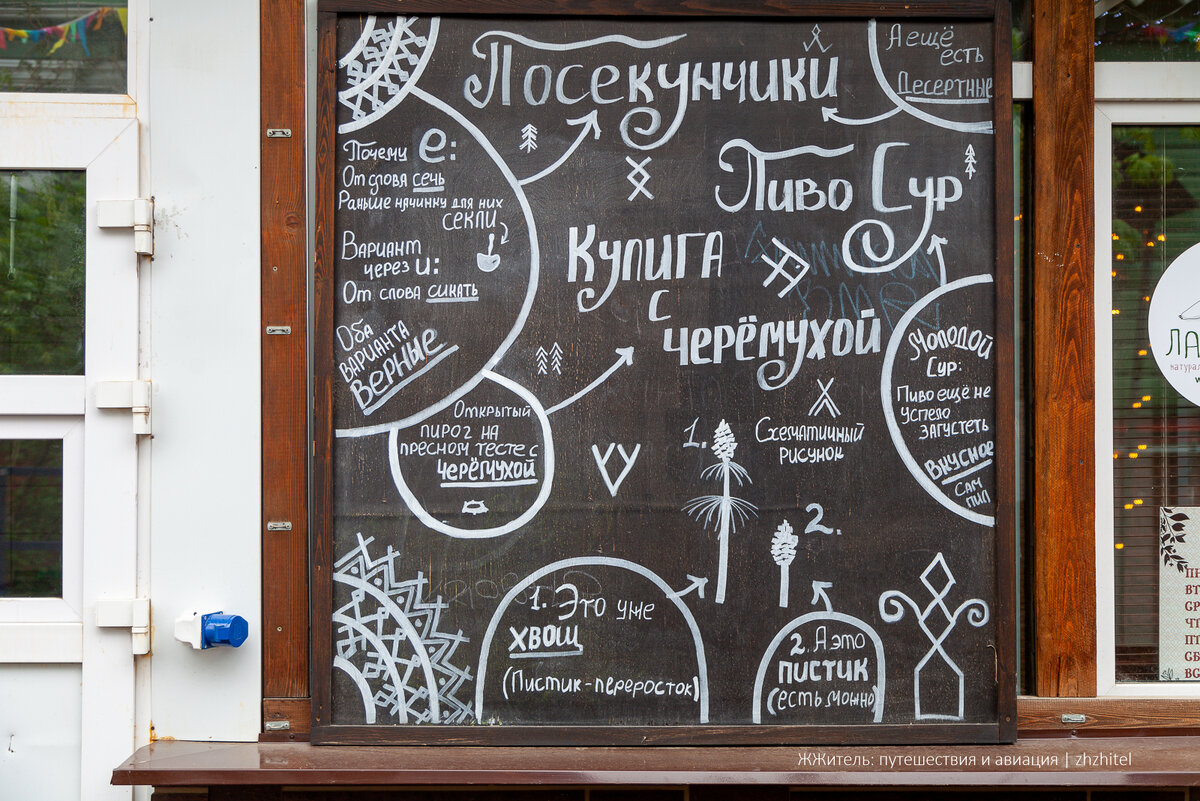 Посекунчики
А ещё
есть
Десертные
Почему е:
От слова сечь
Раньше начинку для них
секли
Вариант
через и:
От слова сикать
Оба
варианта
верные
Пиво Сур
Кулига
с
черёмухой
Молодой
Сур:
Пиво ещё не
успело
загустеть
Вкусное
Сам
пил
Открытый
пирог на
пресном тесте с
черёмухой
1.
Схематичный
рисунок
2.
1. Это уже
хвощ
(Пистик-переросток)
2. А это
пистик
(есть можно)
ЖЖитель: путешествия и авиация | zhzhitel